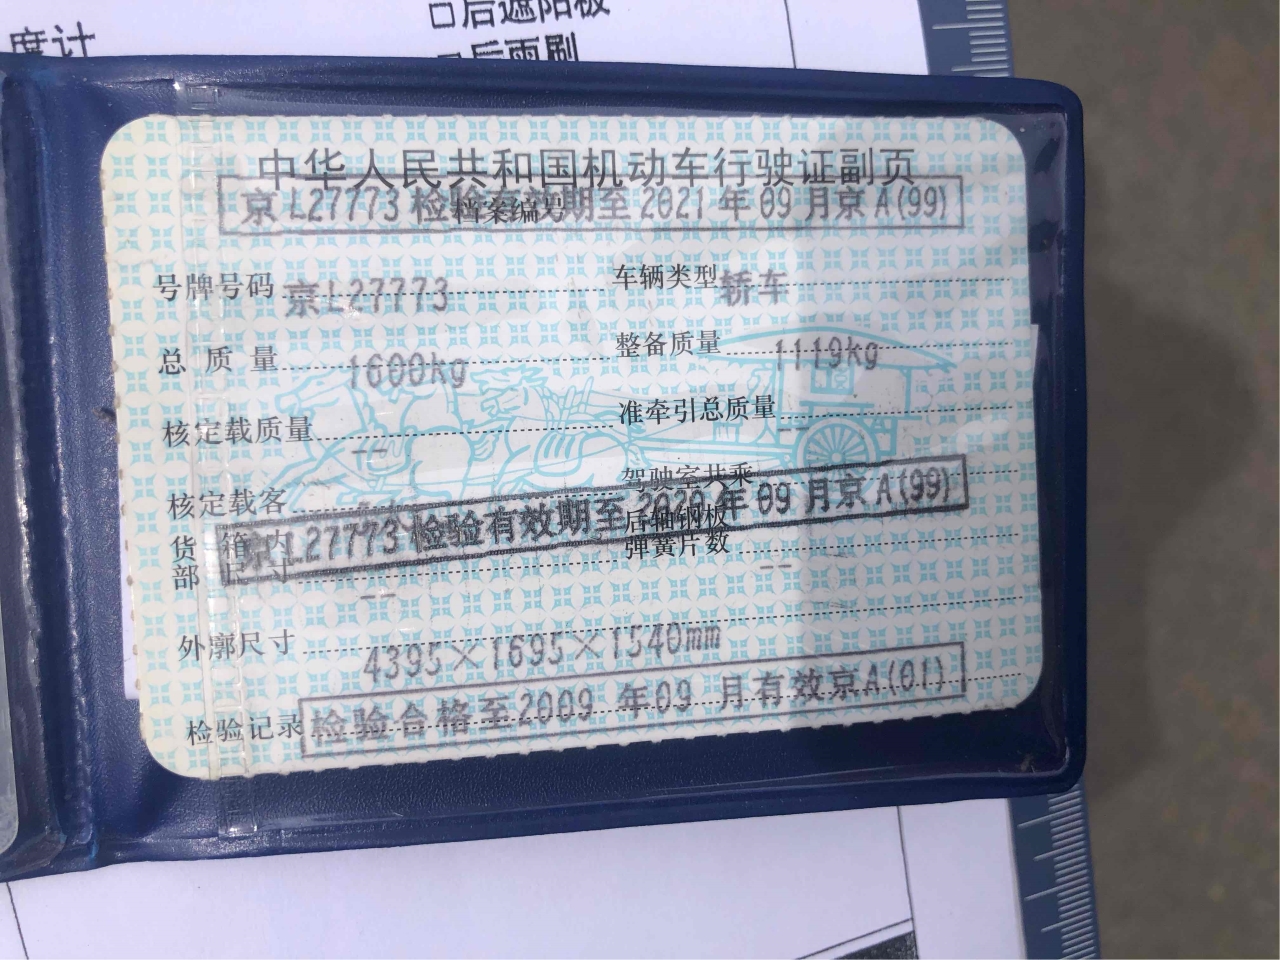 度计
□后遮阳板
□后雨刷
中华人民共和国机动车行驶证副页
京L27773检验有效期至2021年09月京A(99)
档案编号
号牌号码 京L27773 车辆类型 轿车
总质量 1600kg 整备质量 1119kg
核定载质量 -- 准牵引总质量 --
核定载客 驾驶室共乘
京L27773检验有效期至2020年09月京A(99)
货箱内部尺寸 -- 后轴钢板弹簧片数 --
外廓尺寸 4395×1695×1540mm
检验记录 检验合格至2009年09月有效京A(01)